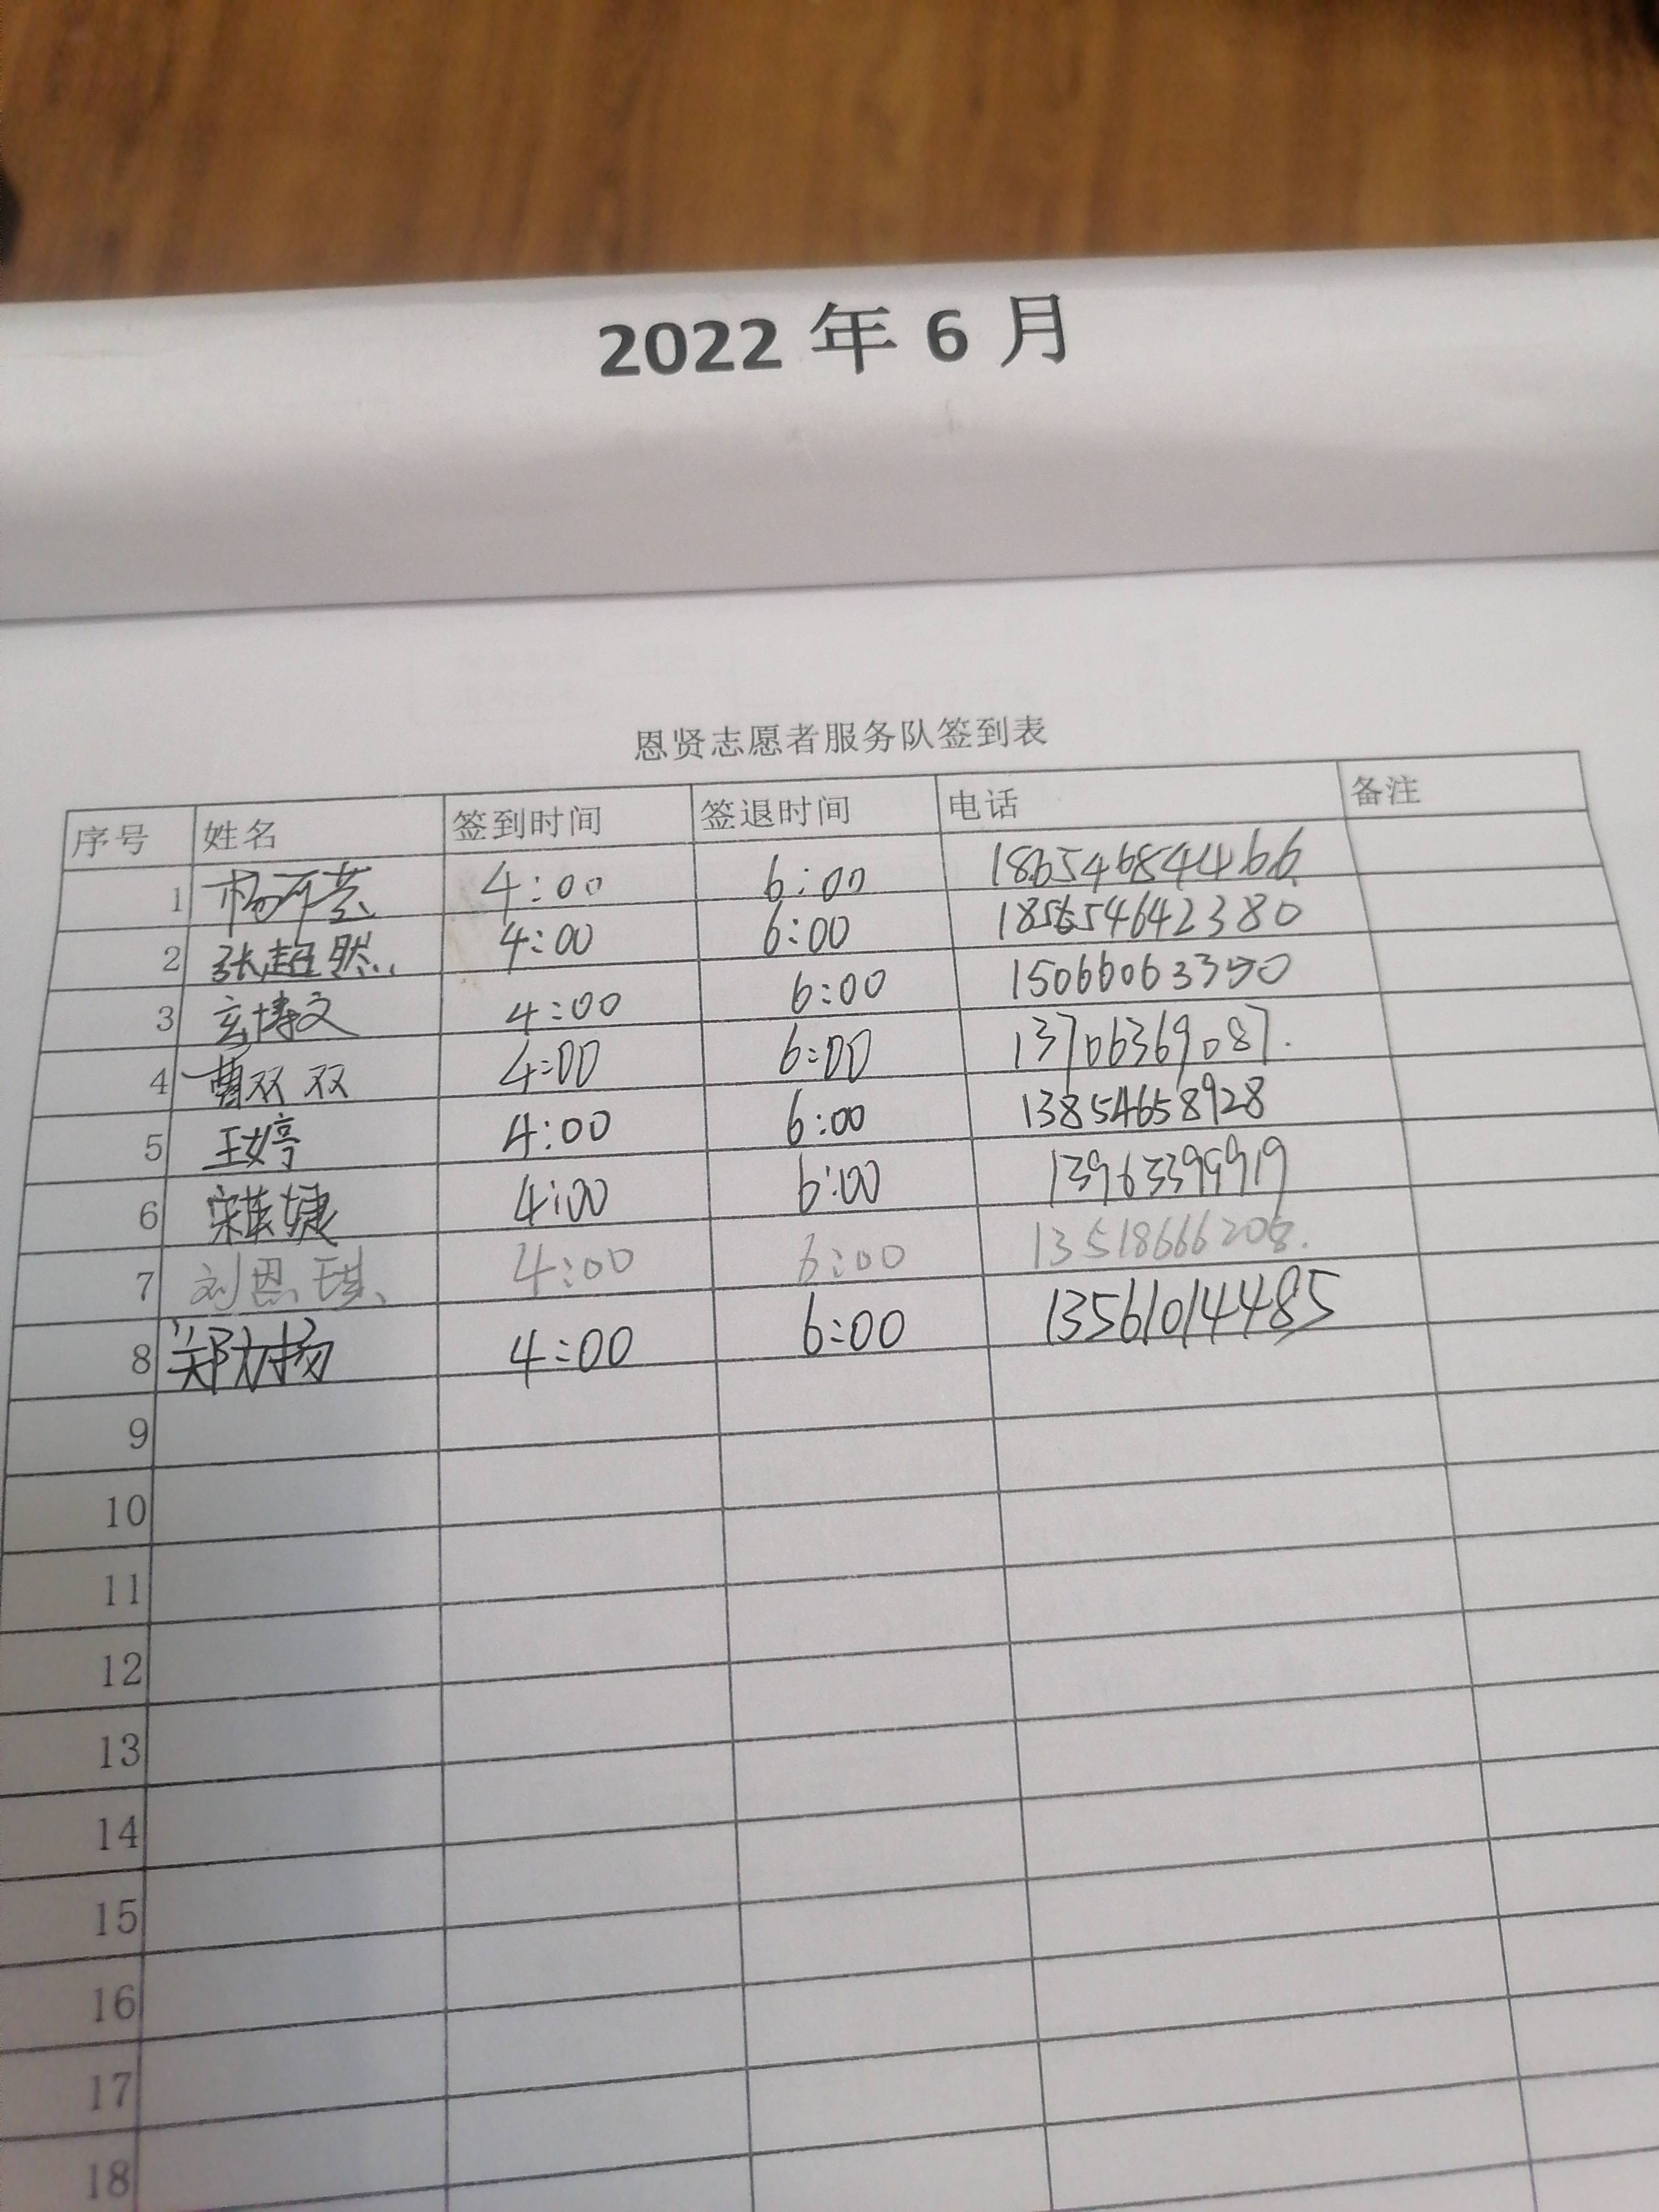 2022 年 6 月
恩贤志愿者服务队签到表
序号 姓名 签到时间 签退时间 电话 备注
1 4:00 6:00
2 张超然 4:00 6:00
3 玄博文 4:00 6:00
4 曹双双 4:00 6:00 13706369087.
5 王婷 4:00 6:00 13854658928
6 4:00 6:00 13963399919
7 刘恩琪 4:00 6:00 13518666208.
8 郑力扬 4:00 6:00 13561014485
9
10
11
12
13
14
15
16
17
18